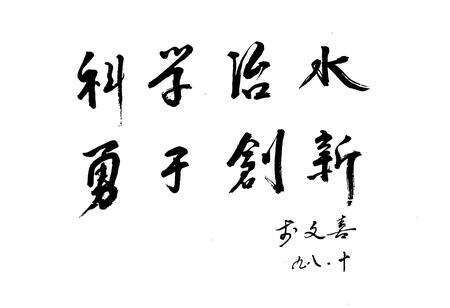 科学治水
勇于創新
文喜
九八.十